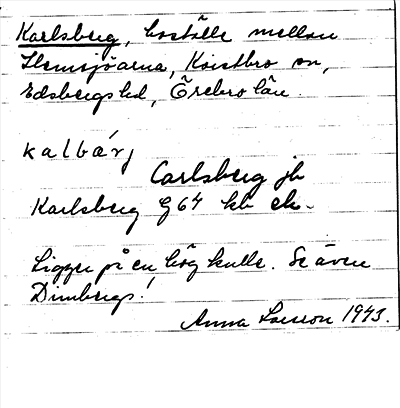 Karlsberg, boställe mellan
Elmsjöarna, Kvistbro sn,
Edsbergs hd, Örebro län.
kalbárj
Carlsberg jb
Karlsberg G64 kb ek.
Ligger på en hög kulle. Se även
Dimbergs!
Anna Larsson 1943.